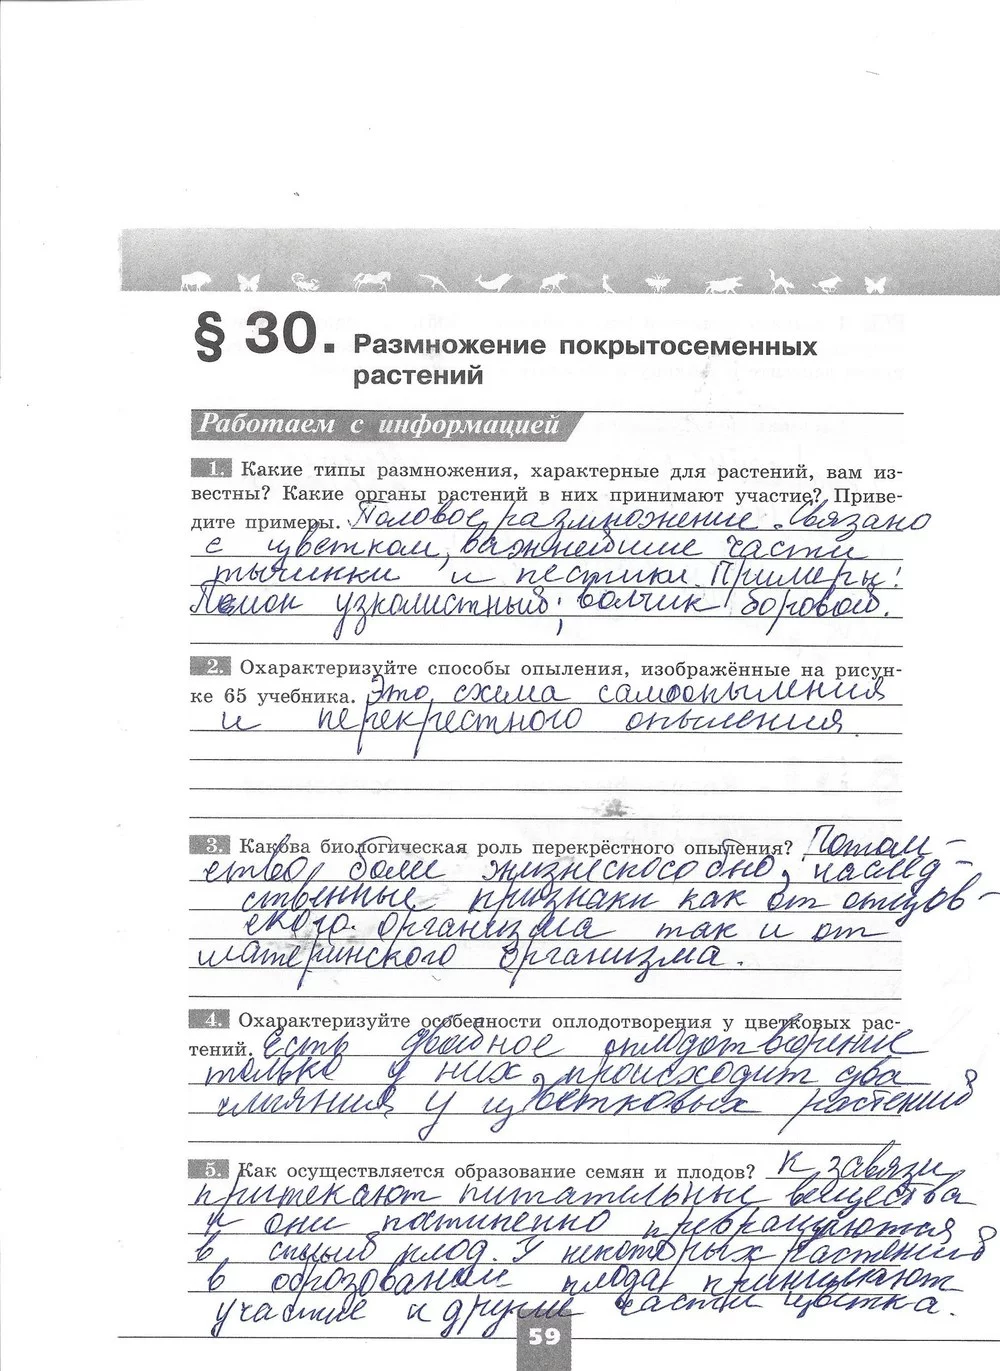 § 30. Размножение покрытосеменных
растений
Работаем с информацией
1. Какие типы размножения, характерные для растений, вам из-
вестны? Какие органы растений в них принимают участие? Приве-
дите примеры. Половое размножение. Связано
с цветком, важнейшие части
тычинки и пестики. Примеры:
Пион узколистный; волчик боровой.
2. Охарактеризуйте способы опыления, изображённые на рисун-
ке 65 учебника. Это схема самоопыления
и перекрестного опыления
3. Какова биологическая роль перекрёстного опыления? Потом-
ство более жизнеспособно, наслед-
ственные признаки как от отцов-
ского организма так и от
материнского организма.
4. Охарактеризуйте особенности оплодотворения у цветковых рас-
тений. Есть двойное оплодотворение
только у них, происходит два
слияния у цветковых растений
5. Как осуществляется образование семян и плодов? К завязи
притекают питательные вещества
и они постепенно превращаются
в спелый плод. У некоторых растений
в образовании плода принимают
участие и другие части цветка.
59